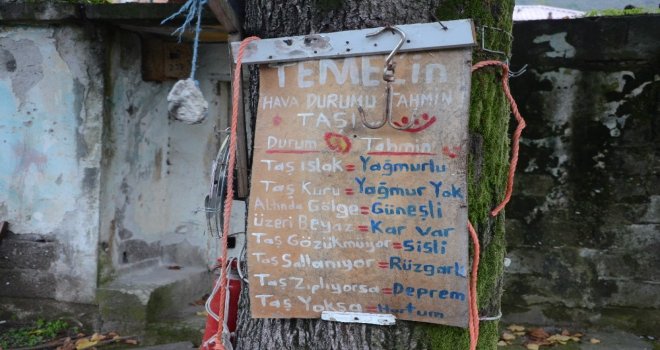 TEMEL'in
HAVA DURUMU TAHMİN
TAŞI
Durum Tahmin
Taş Islak = Yağmurlu
Taş Kuru = Yağmur Yok
Altında Gölge = Güneşli
Üzeri Beyaz = Kar var
Taş Gözükmüyor = Sisli
Taş Sallanıyor = Rüzgark
Taş Zıplıyorsa = Deprem
Taş Yoksa = Hutum